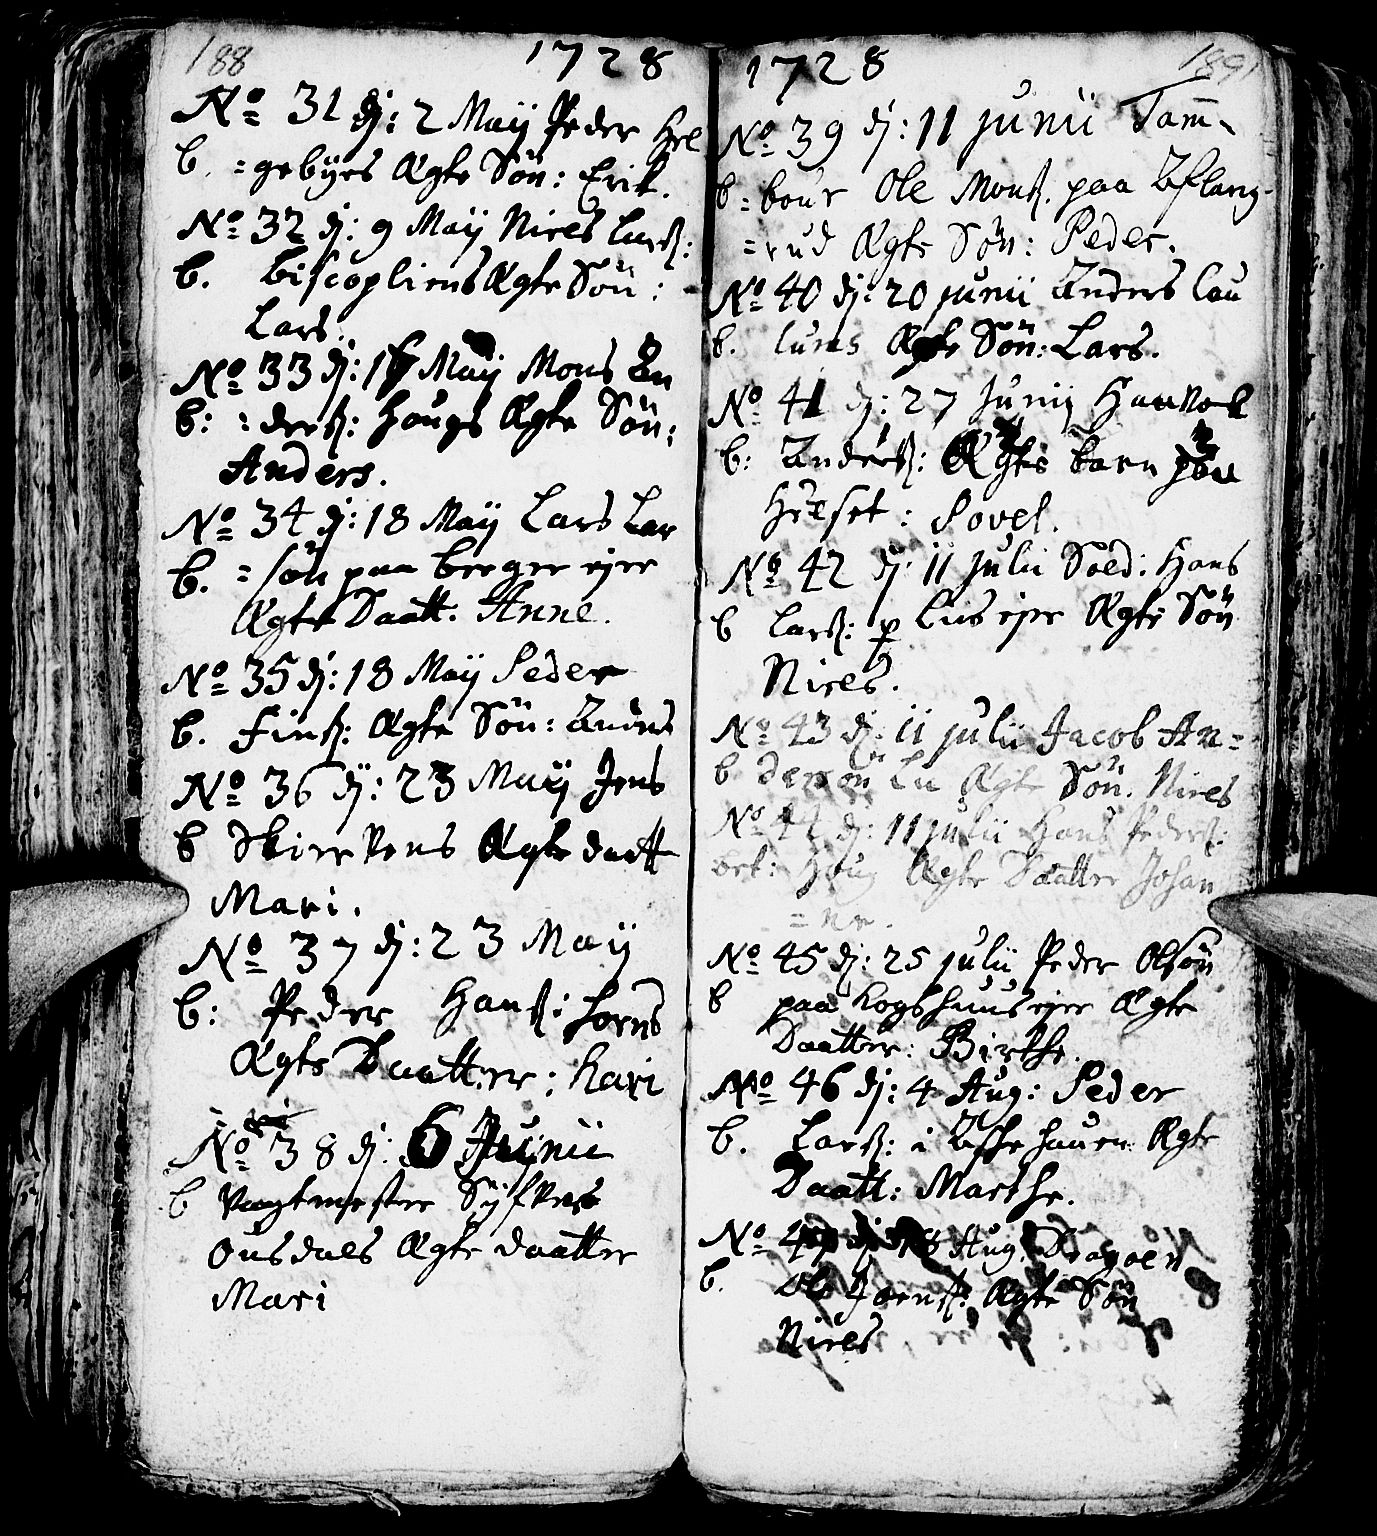 188
1728
No 31 dj: 2 Maij Peder Hel
b. =gebÿes Ægte Sön: Erik.
No 32 dj: 9 Maij Niels Larß:
b. Biscopliens Ægte Sön:
Lars.
No 33 dj: 16 Maij Mons An
b: =derß: Hougs Ægte Sön:
Anders.
No 34 dj: 18 Maij Lars Lar
b. =sön paa Berger ejer
Ægte Daatt. Anne.
No 35 dj: 18 Maij Peder
b. Finß: Ægte Sön: Anders
No 36 dj: 23 Maij Jens
b Ægte daatt
Mari.
No 37 dj: 23 Maij
b: Peder Hanß:
Ægte Daatter: Kari
No 38 dj: 6 Junii
b Vagtmester
Ousdals Ægte daatter
Mari
1728
189
No 39 dj: 11 Junii Tam-
b =bour Ole Monß. paa
=rud Ægte Sön: Peder.
No 40 dj: 20 Junii Anders Lau
b. Ægte Sön: Lars.
No 41 dj: 27 Junij
b: Anderß: Ægte barn
: Povel.
No 42 dj: 11 Julii Sold: Hans
b Larß: p ejer Ægte Sön
Niels.
No 43 dj: 11 Julii Jacob An=
b derson Ægte Sön. Niels
No 44 dj: 11 Julii Hans Pederß:
Houg Ægte Daatter Johan
=ne.
No 45 dj: 25 Julii Peder Olsön
b paa ejer Ægte
Daatter: Birthe.
No 46 dj: 4 Aug: Peder
b. Larß: i Ægte
Daatt: Marthe.
No 47 Aug: Dragoen
b. Ole Ægte Sön
Niels